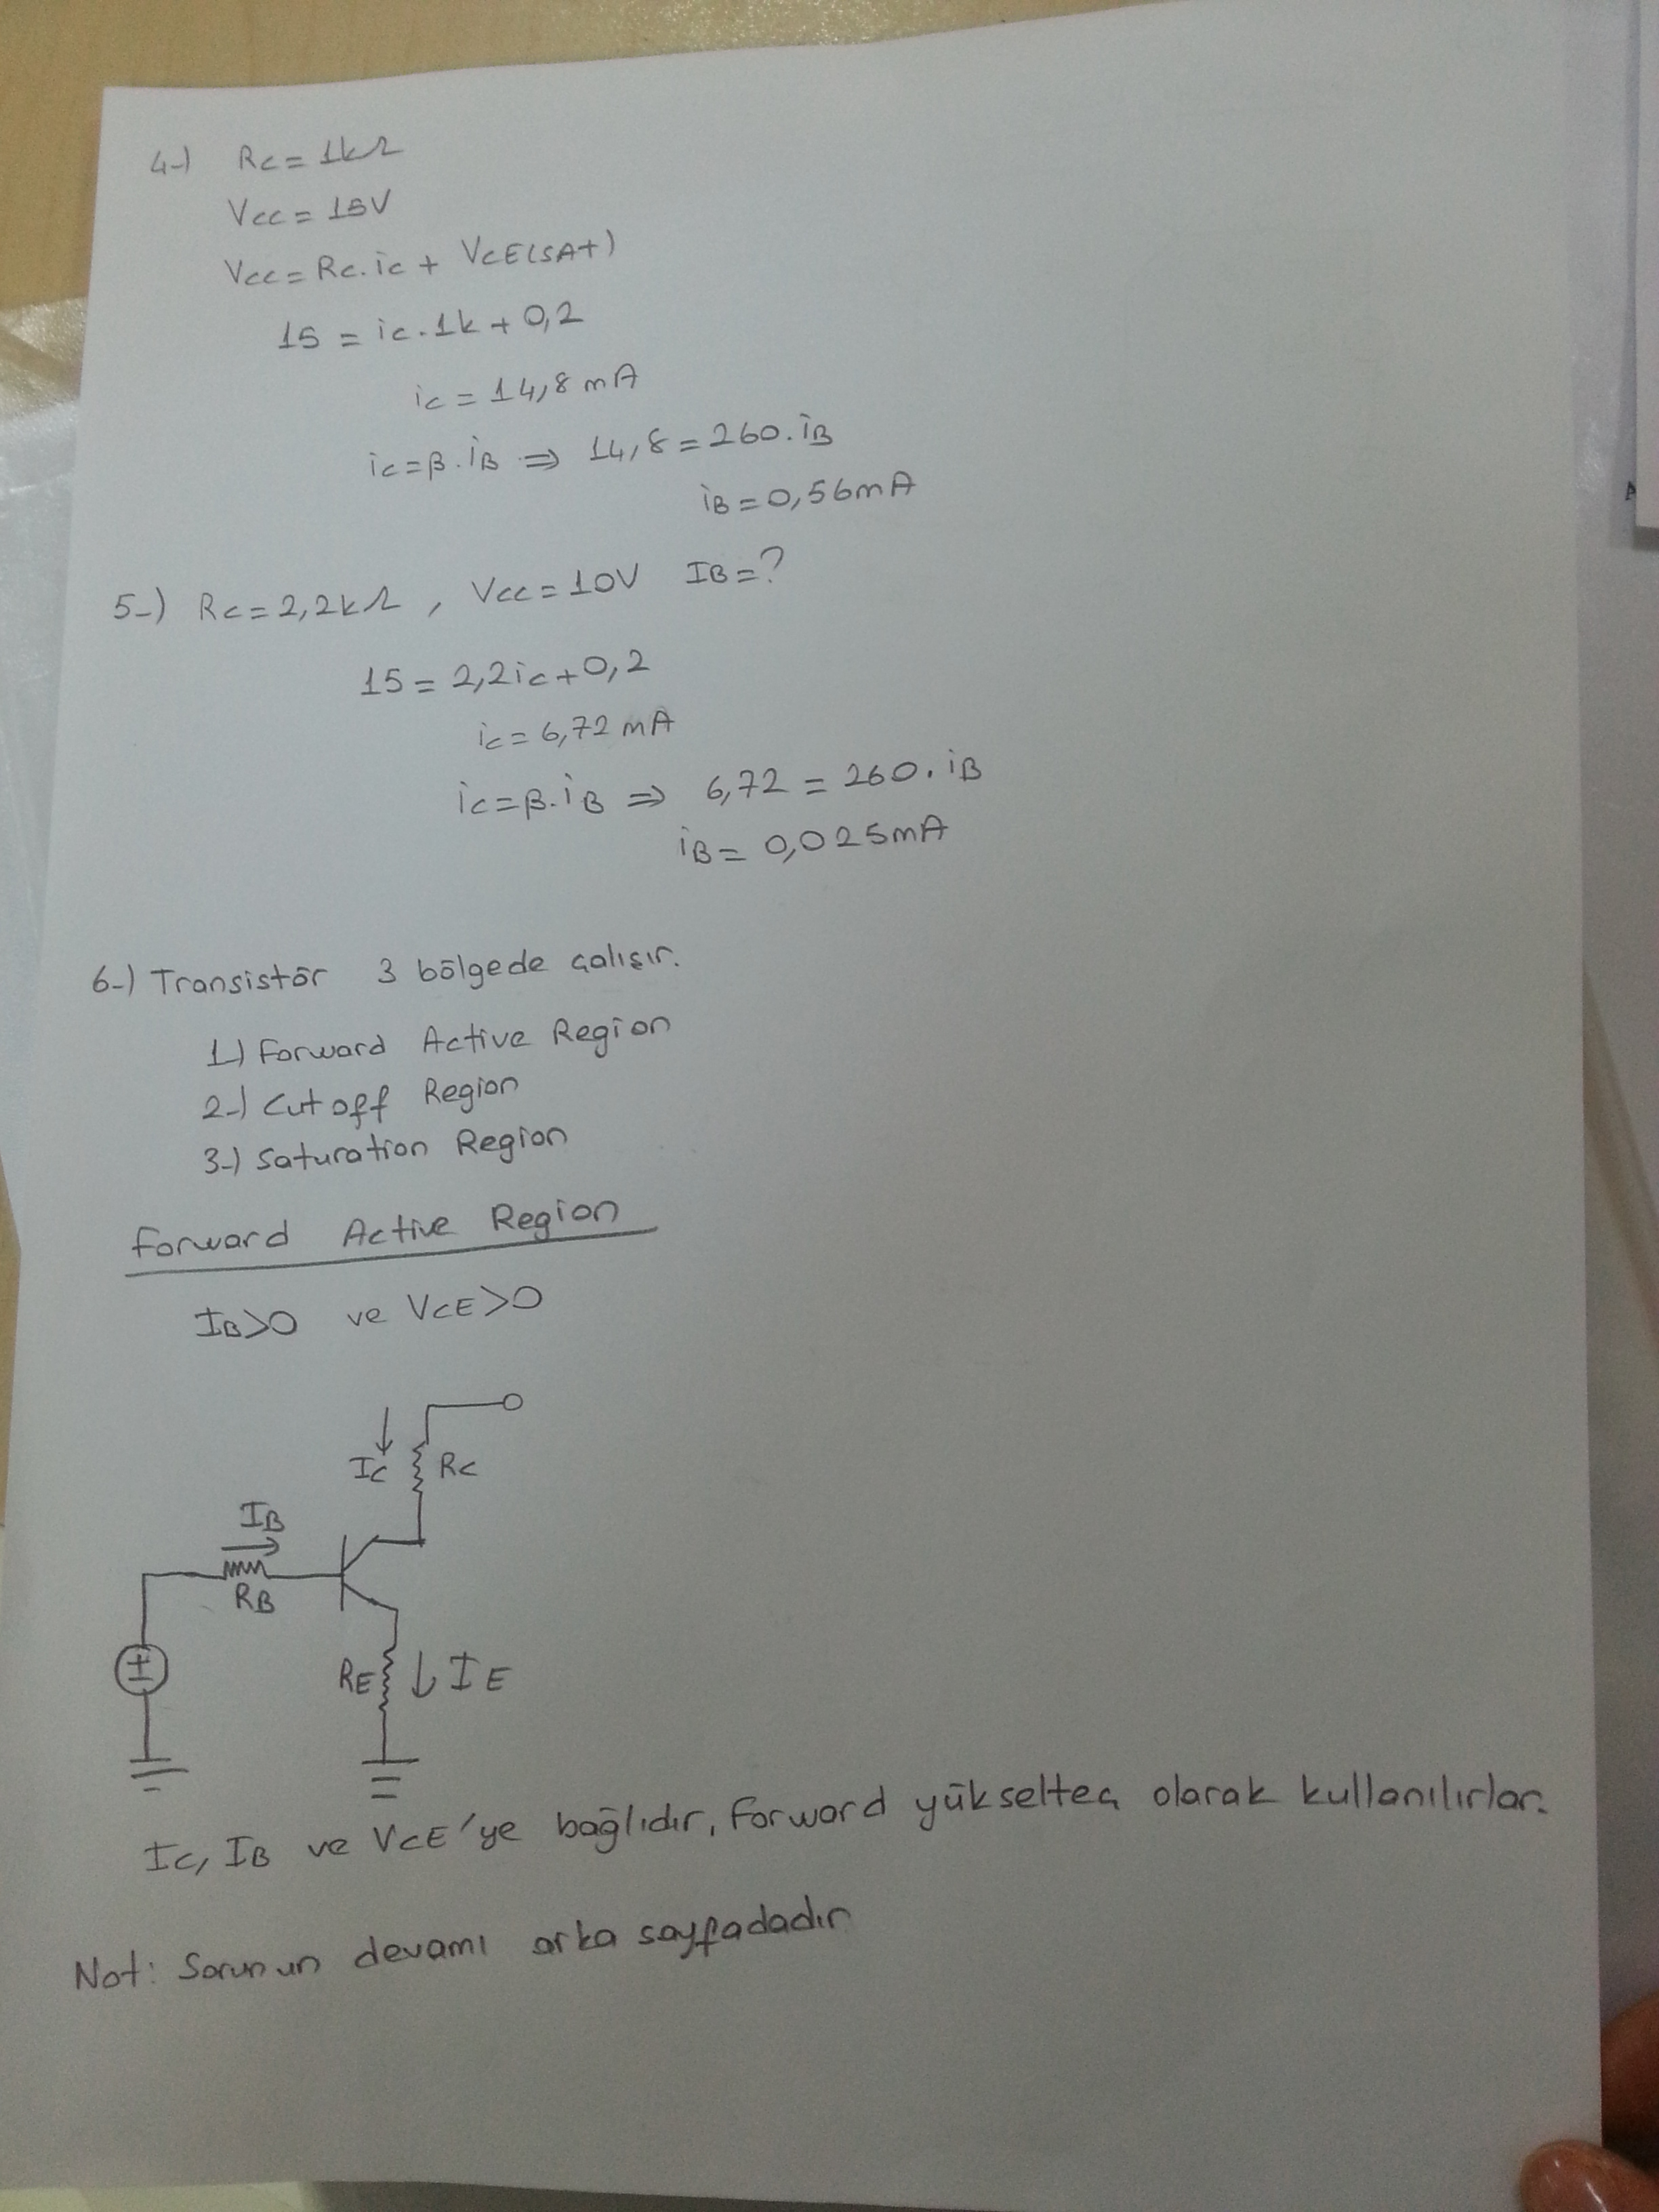 4-) Rc = 1kΩ
Vcc = 15V
Vcc = Rc.ic + VCE(SAt)
15 = ic.1k + 0,2
ic = 14,8 mA
ic = β.iB ⇒ 14,8 = 260.iB
iB = 0,56mA
5-) Rc = 2,2kΩ , Vcc = 10V IB = ?
15 = 2,2ic + 0,2
ic = 6,72 mA
ic = β.iB ⇒ 6,72 = 260.iB
iB = 0,025mA
6-) Transistör 3 bölgede çalışır.
1-) Forward Active Region
2-) Cutoff Region
3-) Saturation Region
Forward Active Region
IB>0 ve VCE>0
IC RC
IB
RB
±
RE IE
IC, IB ve VCE'ye bağlıdır, Forward yükselteç olarak kullanılırlar.
Not: Sorunun devamı arka sayfadadır